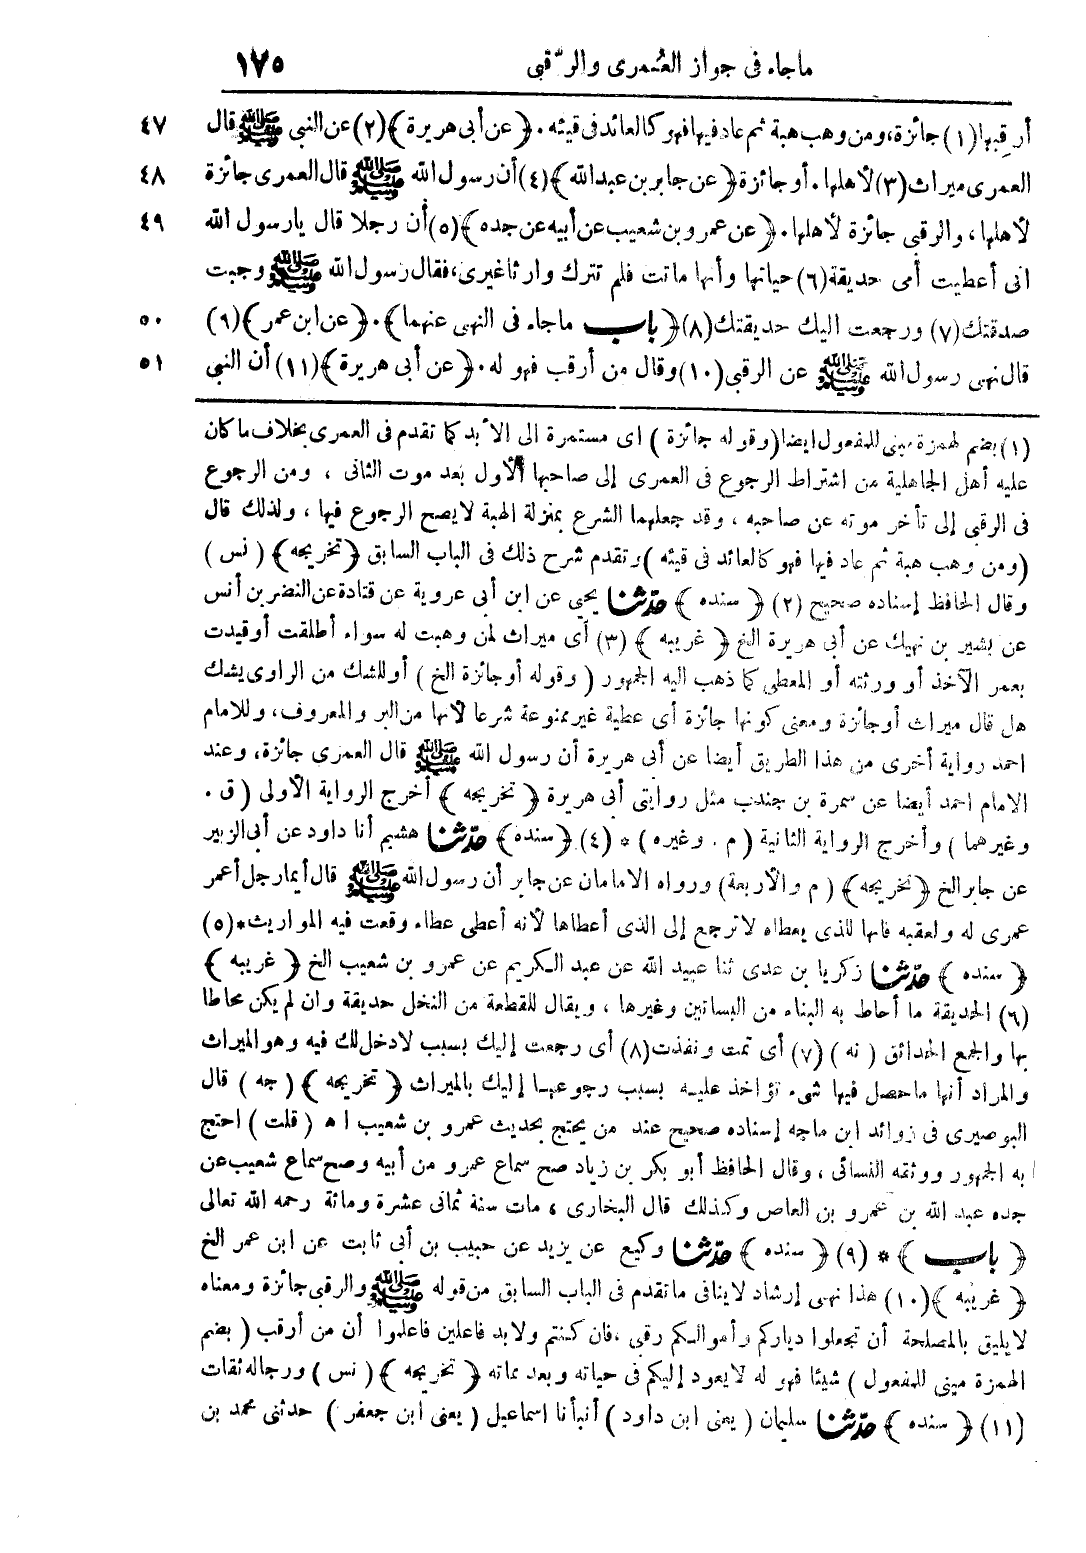 ماجاء فى جواز العُمرى والرّقبى ١٧٥
أرقِبها (١) جائزة، ومن وهب هبة ثم عاد فيها فهو كالعائد فى قيئه. ﴿ عن أبى هريرة ﴾ (٢) عن النبى ﷺ قال ٤٧
العمرى ميراث (٣) لأهلها. أو جائزة ﴿ عن جابر بن عبد الله ﴾ (٤) أن رسول الله ﷺ قال العمرى جائزة ٤٨
لأهلها، والرقبى جائزة لأهلها. ﴿ عن عمرو بن شعيب عن أبيه عن جده ﴾ (٥) أن رجلا قال يا رسول الله ٤٩
انى أعطيت أمى حديقة (٦) حياتها وأنها ماتت فلم تترك وارثا غيرى، فقال رسول الله ﷺ وجبت
صدقتك (٧) ورجعت اليك حديقتك (٨) ﴿ باب ماجاء فى النهى عنهما ﴾. ﴿ عن ابن عمر ﴾ (٩) ٥٠
قال نهى رسول الله ﷺ عن الرقبى (١٠) وقال من أرقب فهو له. ﴿ عن أبى هريرة ﴾ (١١) أن النبى ٥١
(١) بضم لهمزة مبنى للمفعول ايضا (وقوله جائزة) اى مستمرة الى الأبد كما تقدم فى العمرى بخلاف ما كان
عليه أهل الجاهلية من اشتراط الرجوع فى العمرى إلى صاحبها الأول بعد موت الثانى ، ومن الرجوع
فى الرقبى إلى تأخر موته عن صاحبه ، وقد جعلهما الشرع بمنزلة الهبة لايصح الرجوع فيها ، ولذلك قال
(ومن وهب هبة ثم عاد فيها فهو كالعائد فى قيئه) وتقدم شرح ذلك فى الباب السابق ﴿ تخريجه ﴾ ( نس )
وقال الحافظ إسناده صحيح (٢) ﴿ سنده ﴾ حدّثنا يحيى عن ابن أبى عروبة عن قتادة عن النضر بن أنس
عن بشير بن نهيك عن أبى هريرة الخ ﴿ غريبه ﴾ (٣) أى ميراث لمن وهبت له سواء أطلقت أو قيدت
بعمر الآخذ أو ورثته أو المعطى كما ذهب اليه الجمهور ( وقوله أو جائزة الخ ) أو للشك من الراوى يشك
هل قال ميراث أو جائزة ومعنى كونها جائزة أى عطية غير ممنوعة شرعا لأنها من البر والمعروف، وللامام
احمد رواية أخرى من هذا الطريق أيضا عن أبى هريرة أن رسول الله ﷺ قال العمرى جائزة، وعند
الامام احمد أيضا عن سمرة بن جندب مثل روايتى أبى هريرة ﴿ تخريجه ﴾ أخرج الرواية الأولى ( ق .
وغيرهما ) وأخرج الرواية الثانية ( م . وغيره ) * (٤) ﴿ سنده ﴾ حدّثنا هشيم أنا داود عن أبى الزبير
عن جابر الخ ﴿ تخريجه ﴾ ( م والأربعة) ورواه الامامان عن جابر أن رسول الله ﷺ قال أيما رجل أعمر
عمرى له ولعقبه فانها للذى يعطاه لا ترجع إلى الذى أعطاها لأنه أعطى عطاء وقعت فيه المواريث * (٥)
﴿ سنده ﴾ حدّثنا زكريا بن عدى ثنا عبيد الله عن عبد الكريم عن عمرو بن شعيب الخ ﴿ غريبه ﴾
(٦) الحديقة ما أحاط به البناء من البساتين وغيرها ، ويقال للقطعة من النخل حديقة وان لم يكن محاطا
بها والجمع الحدائق ( نه ) (٧) أى تمت ونفذت (٨) أى رجعت إليك بسبب لا دخل لك فيه وهو الميراث
والمراد أنها ما حصل فيها شىء تؤاخذ عليه بسبب رجوعها إليك بالميراث ﴿ تخريجه ﴾ ( جه ) قال
البوصيرى فى زوائد ابن ماجه إسناده صحيح عند من يحتج بحديث عمرو بن شعيب ا ه ( قلت ) احتج
به الجمهور ووثقه النسائى ، وقال الحافظ أبو بكر بن زياد صح سماع عمرو من أبيه وصح سماع شعيب عن
جده عبد الله بن عمرو بن العاص وكذلك قال البخارى ، مات سنة ثمانى عشرة ومائة رحمه الله تعالى
﴿ باب ﴾ * (٩) ﴿ سنده ﴾ حدّثنا وكيع عن يزيد عن حبيب بن أبى ثابت عن ابن عمر الخ
﴿ غريبه ﴾ (١٠) هذا نهى إرشاد لا ينافى ما تقدم فى الباب السابق من قوله ﷺ والرقبى جائزة ومعناه
لا يليق بالمصلحة أن تجعلوا دياركم وأموالكم رقبى ، فان كنتم ولابد فاعلين فاعلموا أن من أرقب ( بضم
الهمزة مبنى للمفعول ) شيئا فهو له لا يعود إليكم فى حياته وبعد مماته ﴿ تخريجه ﴾ ( نس ) ورجاله ثقات
(١١) ﴿ سنده ﴾ حدّثنا سليمان ( يعنى ابن داود ) أنبأنا اسماعيل ( يعنى ابن جعفر ) حدثنى محمد بن